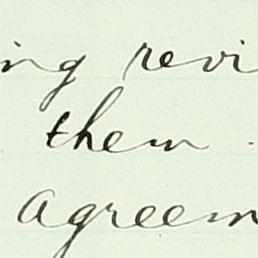 ing revi
them.
agreem